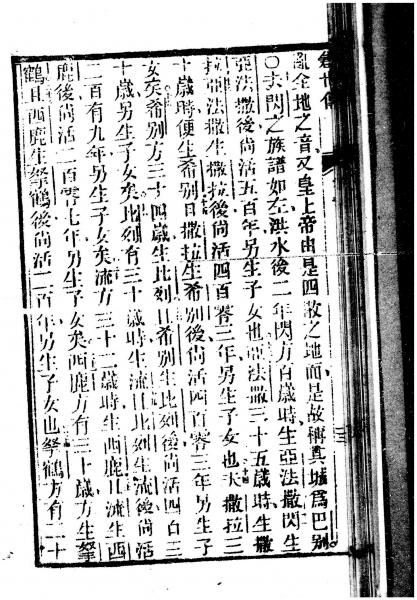 亂全地之音又皇上帝由是四散之地而是故稱其城為巴別
○夫閃之族譜如左洪水後二年閃方百歲時生亞法撒閃生
亞法撒後尚活五百年另生子女也亞法撒三十五歲時生撒
拉亞法撒生撒拉後尚活四百零三年另生子女也夫撒拉三
十歲時便生希別曰撒拉生希別後尚活四百零三年另生子
女矣希別方三十四歲生比列且希別生比列後尚活四百三
十歲另生子女矣比列有三十歲時生流且比列生流後尚活
二百有九年另生子女矣流方三十二歲時生西鹿且流生西
鹿後尚活二百零七年另生子女矣西鹿方有三十歲方生拏
鶴且西鹿生拏鶴後尚活二百年另生子女也拏鶴方有二十